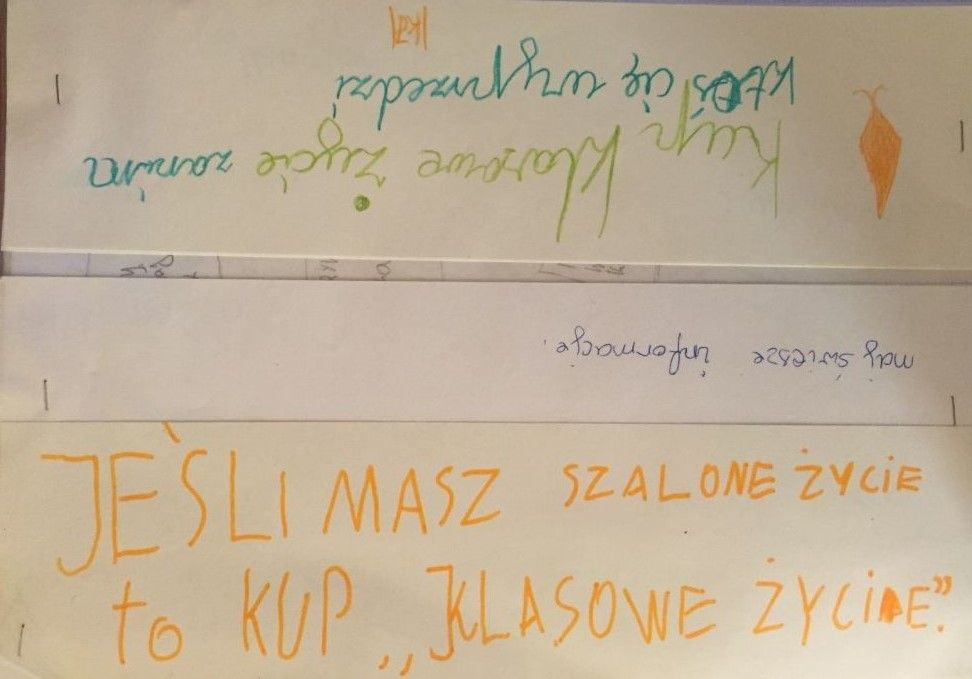 Kup klasowe życie zanim
ktoś cię wyprzedzi
naj świesze informacje.
JEŚLI MASZ SZALONE ŻYCIE
to KUP „KLASOWE ŻYCIE."